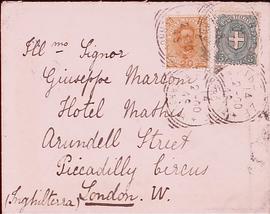 Ill mo Signor
Giuseppe Marconi
Hotel Mathis
Arundell Street
Piccadilly Circus
(Inghilterra) London. W.